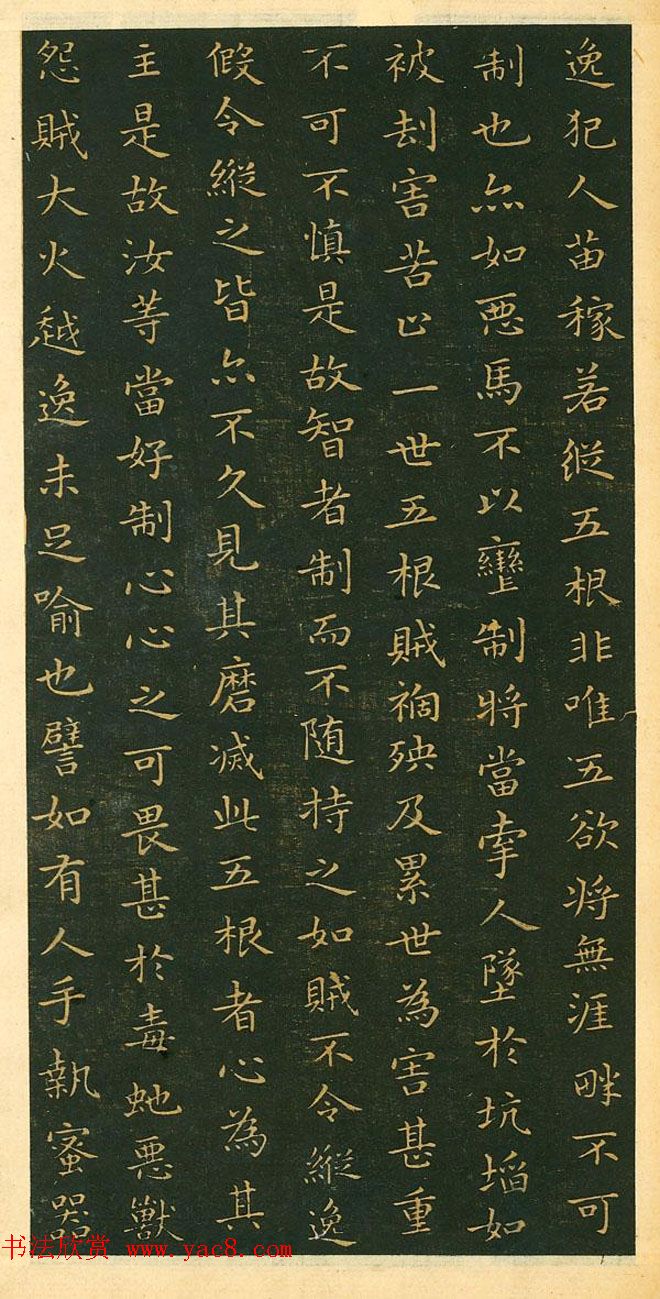 逸犯人苗稼若縱五根非唯五欲将無涯畔不可
制也亦如惡馬不以轡制将當牽人墜於坑埳如
被刼害苦止一世五根賊禍殃及累世為害甚重
不可不慎是故智者制而不随持之如賊不令縱逸
假令縱之皆亦不久見其磨滅此五根者心為其
主是故汝等當好制心心之可畏甚於毒蛇惡獸
怨賊大火越逸未足喻也譬如有人手執蜜器
书法欣赏 www.yac8.com